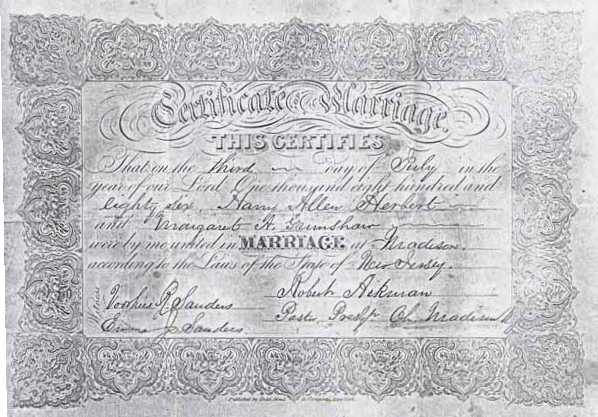 Certificate of Marriage.
THIS CERTIFIES
That on the third day of July in the
year of our Lord One thousand eight hundred and
eighty six, Harry Allen Herbert
and Margaret A. Grimshaw
were by me united in MARRIAGE at Madison
according to the Laws of the State of New Jersey.
Robert Aikman
Voorhees Sanders
Pastor Presbt. Ch. Madison
Emma J. Sanders